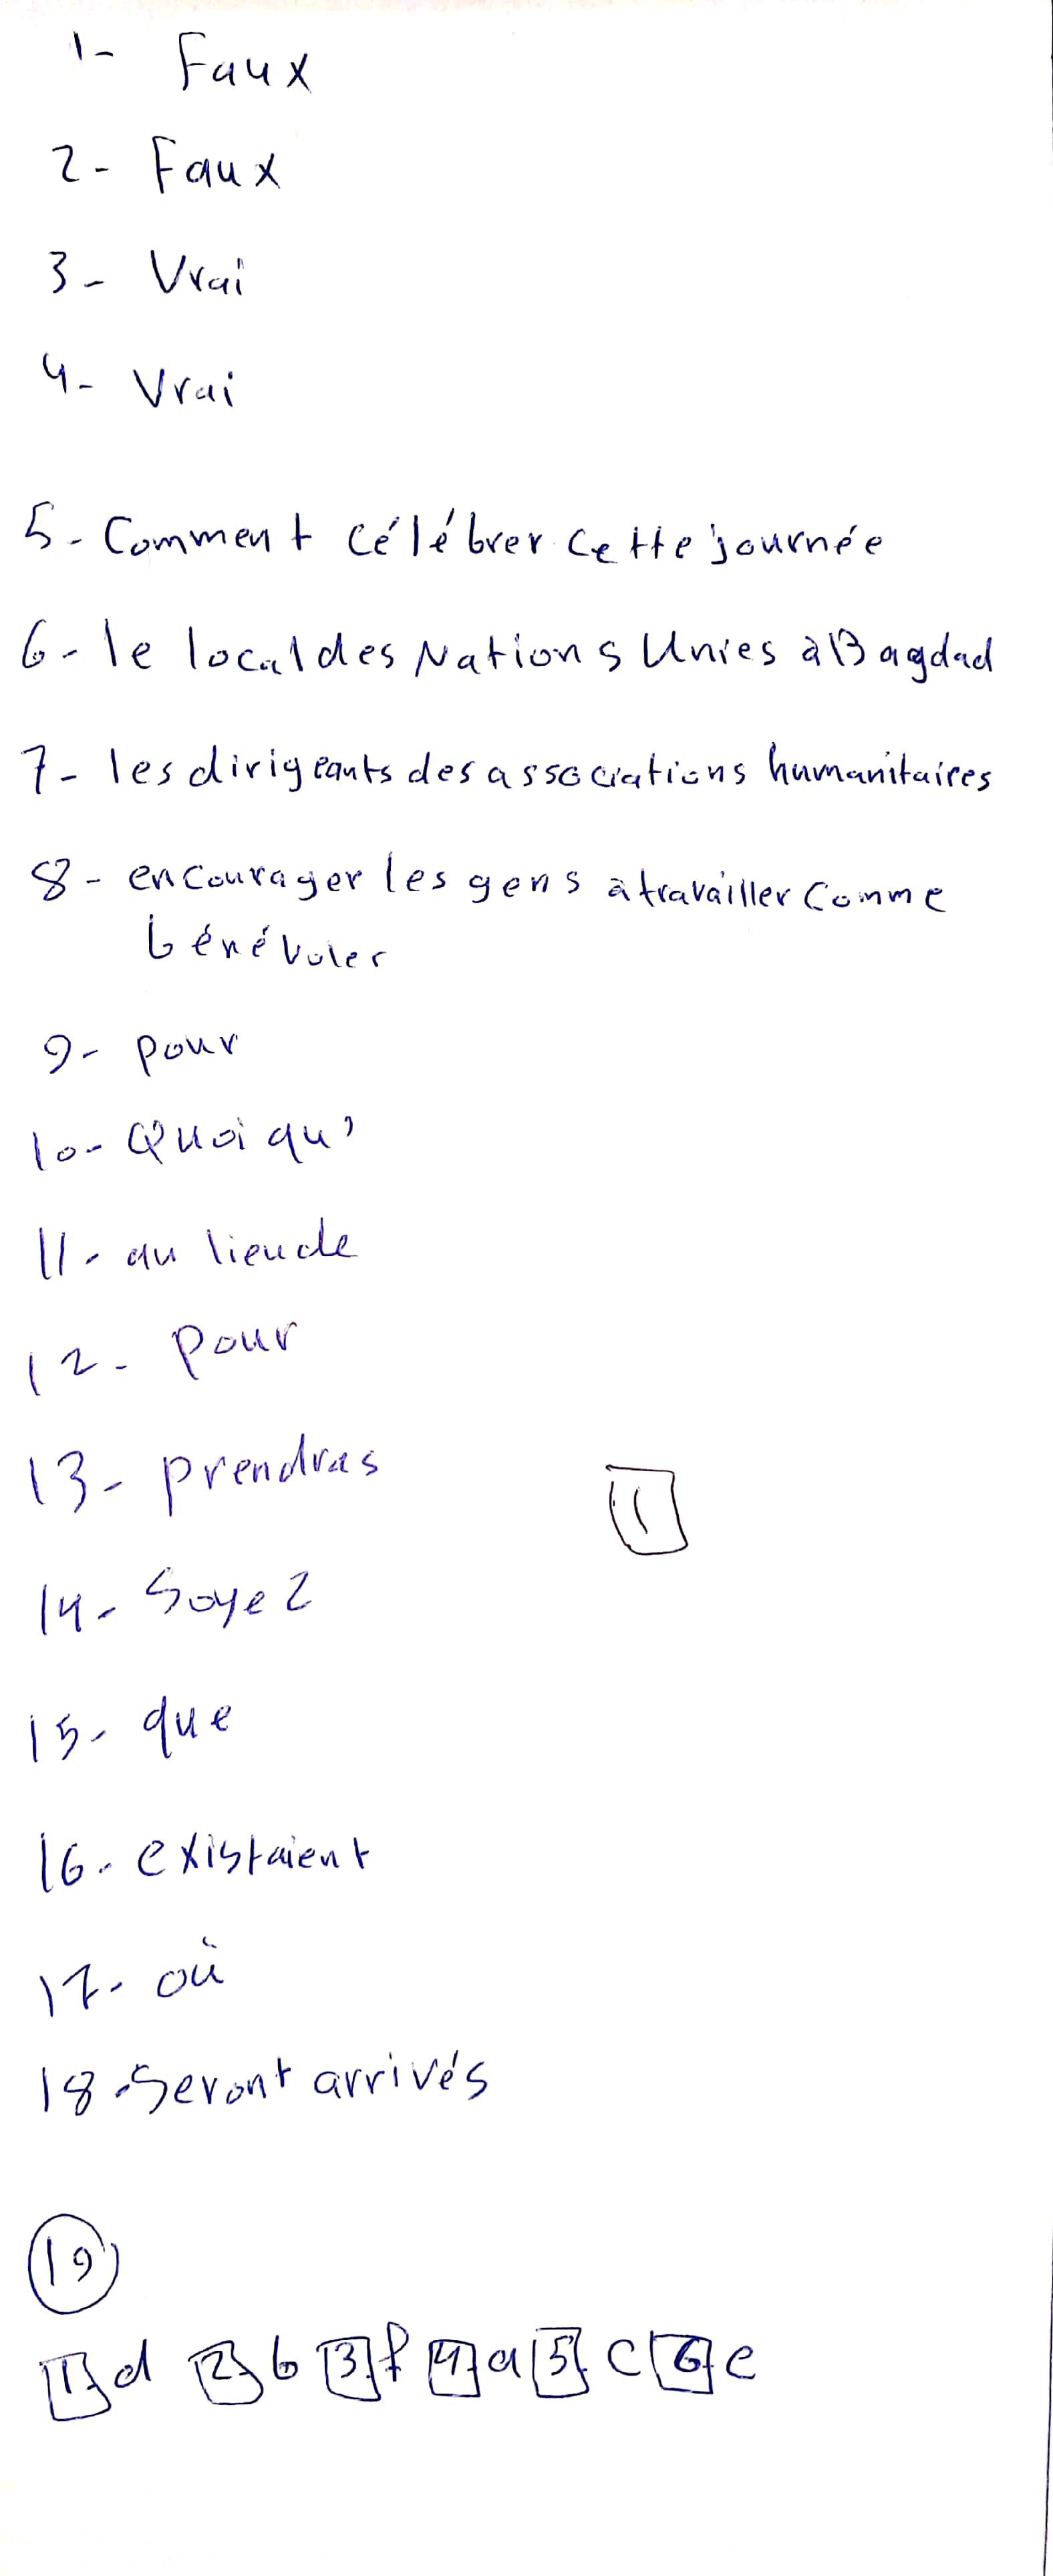 1- Faux
2- Faux
3- Vrai
4- Vrai
5- Comment célébrer cette journée
6- le local des Nations Unies à Bagdad
7- les dirigeants des associations humanitaires
8- encourager les gens à travailler comme
bénévoler
9- pour
10- Quoiqu'
11- au lieu de
12- Pour
13- prendras
1
14- Soyez
15- que
16- existaient
17- où
18- Seront arrivés
19
1 d 2 b 3 f 4 a 5 c 6 e